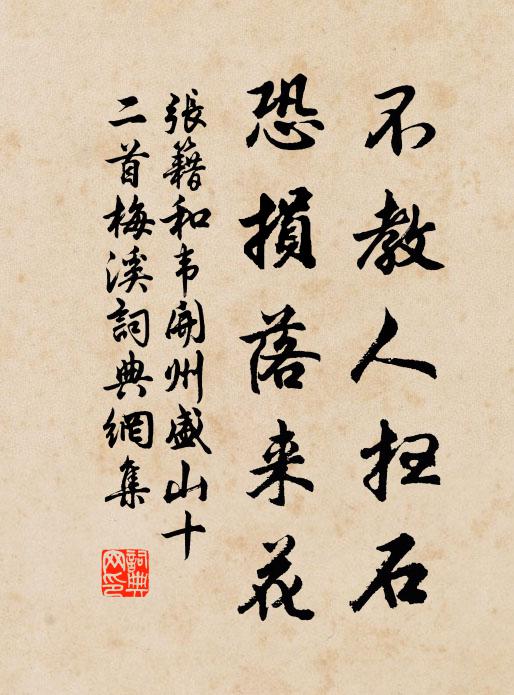 不教人扫石
恐損落来花
張籍和韦開州盛山十
二首梅溪詞典網集
詞典
网印